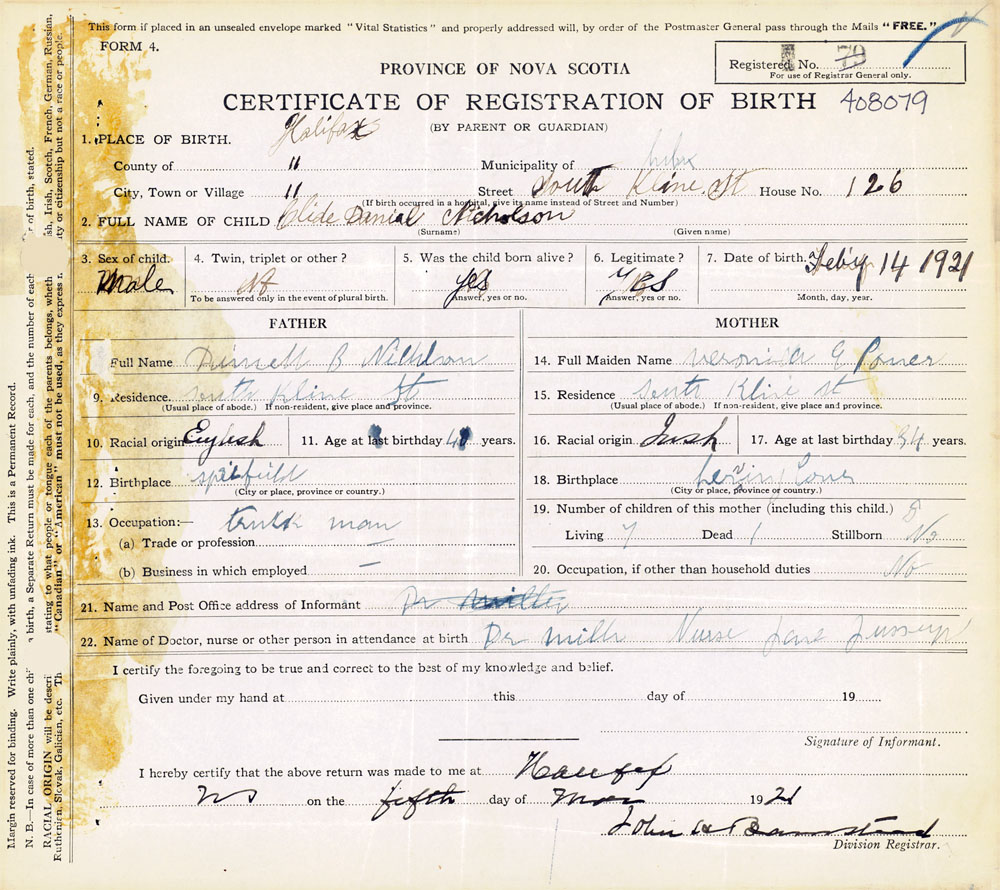 This form if placed in an unsealed envelope marked "Vital Statistics" and properly addressed will, by order of the Postmaster General pass through the Mails "FREE."
FORM 4.
Registered No. 79
For use of Registrar General only.
PROVINCE OF NOVA SCOTIA
CERTIFICATE OF REGISTRATION OF BIRTH 408079
(BY PARENT OR GUARDIAN)
1. PLACE OF BIRTH. Halifax
County of " Municipality of
City, Town or Village " Street South Kline St House No. 126
(If birth occurred in a hospital, give its name instead of Street and Number)
2. FULL NAME OF CHILD Danial Nicholson
(Surname) (Given name)
3. Sex of child. Male
4. Twin, triplet or other?
To be answered only in the event of plural birth.
5. Was the child born alive? yes
Answer, yes or no.
6. Legitimate? Yes
Answer, yes or no.
7. Date of birth. Feb'y 14 1921
Month, day, year.
FATHER
Full Name B
9. Residence. South Kline St
(Usual place of abode.) If non-resident, give place and province.
10. Racial origin English 11. Age at last birthday years.
12. Birthplace
(City or place, province or country.)
13. Occupation:— truck man
(a) Trade or profession —
(b) Business in which employed —
MOTHER
14. Full Maiden Name Veronica E Power
15. Residence South Kline st
(Usual place of abode.) If non-resident, give place and province.
16. Racial origin Irish 17. Age at last birthday 34 years.
18. Birthplace Herring Cove
(City or place, province or country.)
19. Number of children of this mother (including this child.) 8
Living 7 Dead 1 Stillborn No
20. Occupation, if other than household duties No
21. Name and Post Office address of Informant Dr
22. Name of Doctor, nurse or other person in attendance at birth Dr Nurse Jane
I certify the foregoing to be true and correct to the best of my knowledge and belief.
Given under my hand at this day of 19
Signature of Informant.
I hereby certify that the above return was made to me at Halifax
NS on the fifth day of Mar 1921
John
Division Registrar.
Margin reserved for binding. Write plainly, with unfading ink. This is a Permanent Record.
N. B.—In case of more than one birth, a Separate Return must be made for each, and the number of each of birth, stated.
RACIAL ORIGIN will be stating to what people or tongue each of the parents belongs, English, Irish, Scotch, French, German, Russian,
Ruthenian, Slovak, Galician, etc. "Canadian" or "American" must not be used, as they express or citizenship but not a race or people.